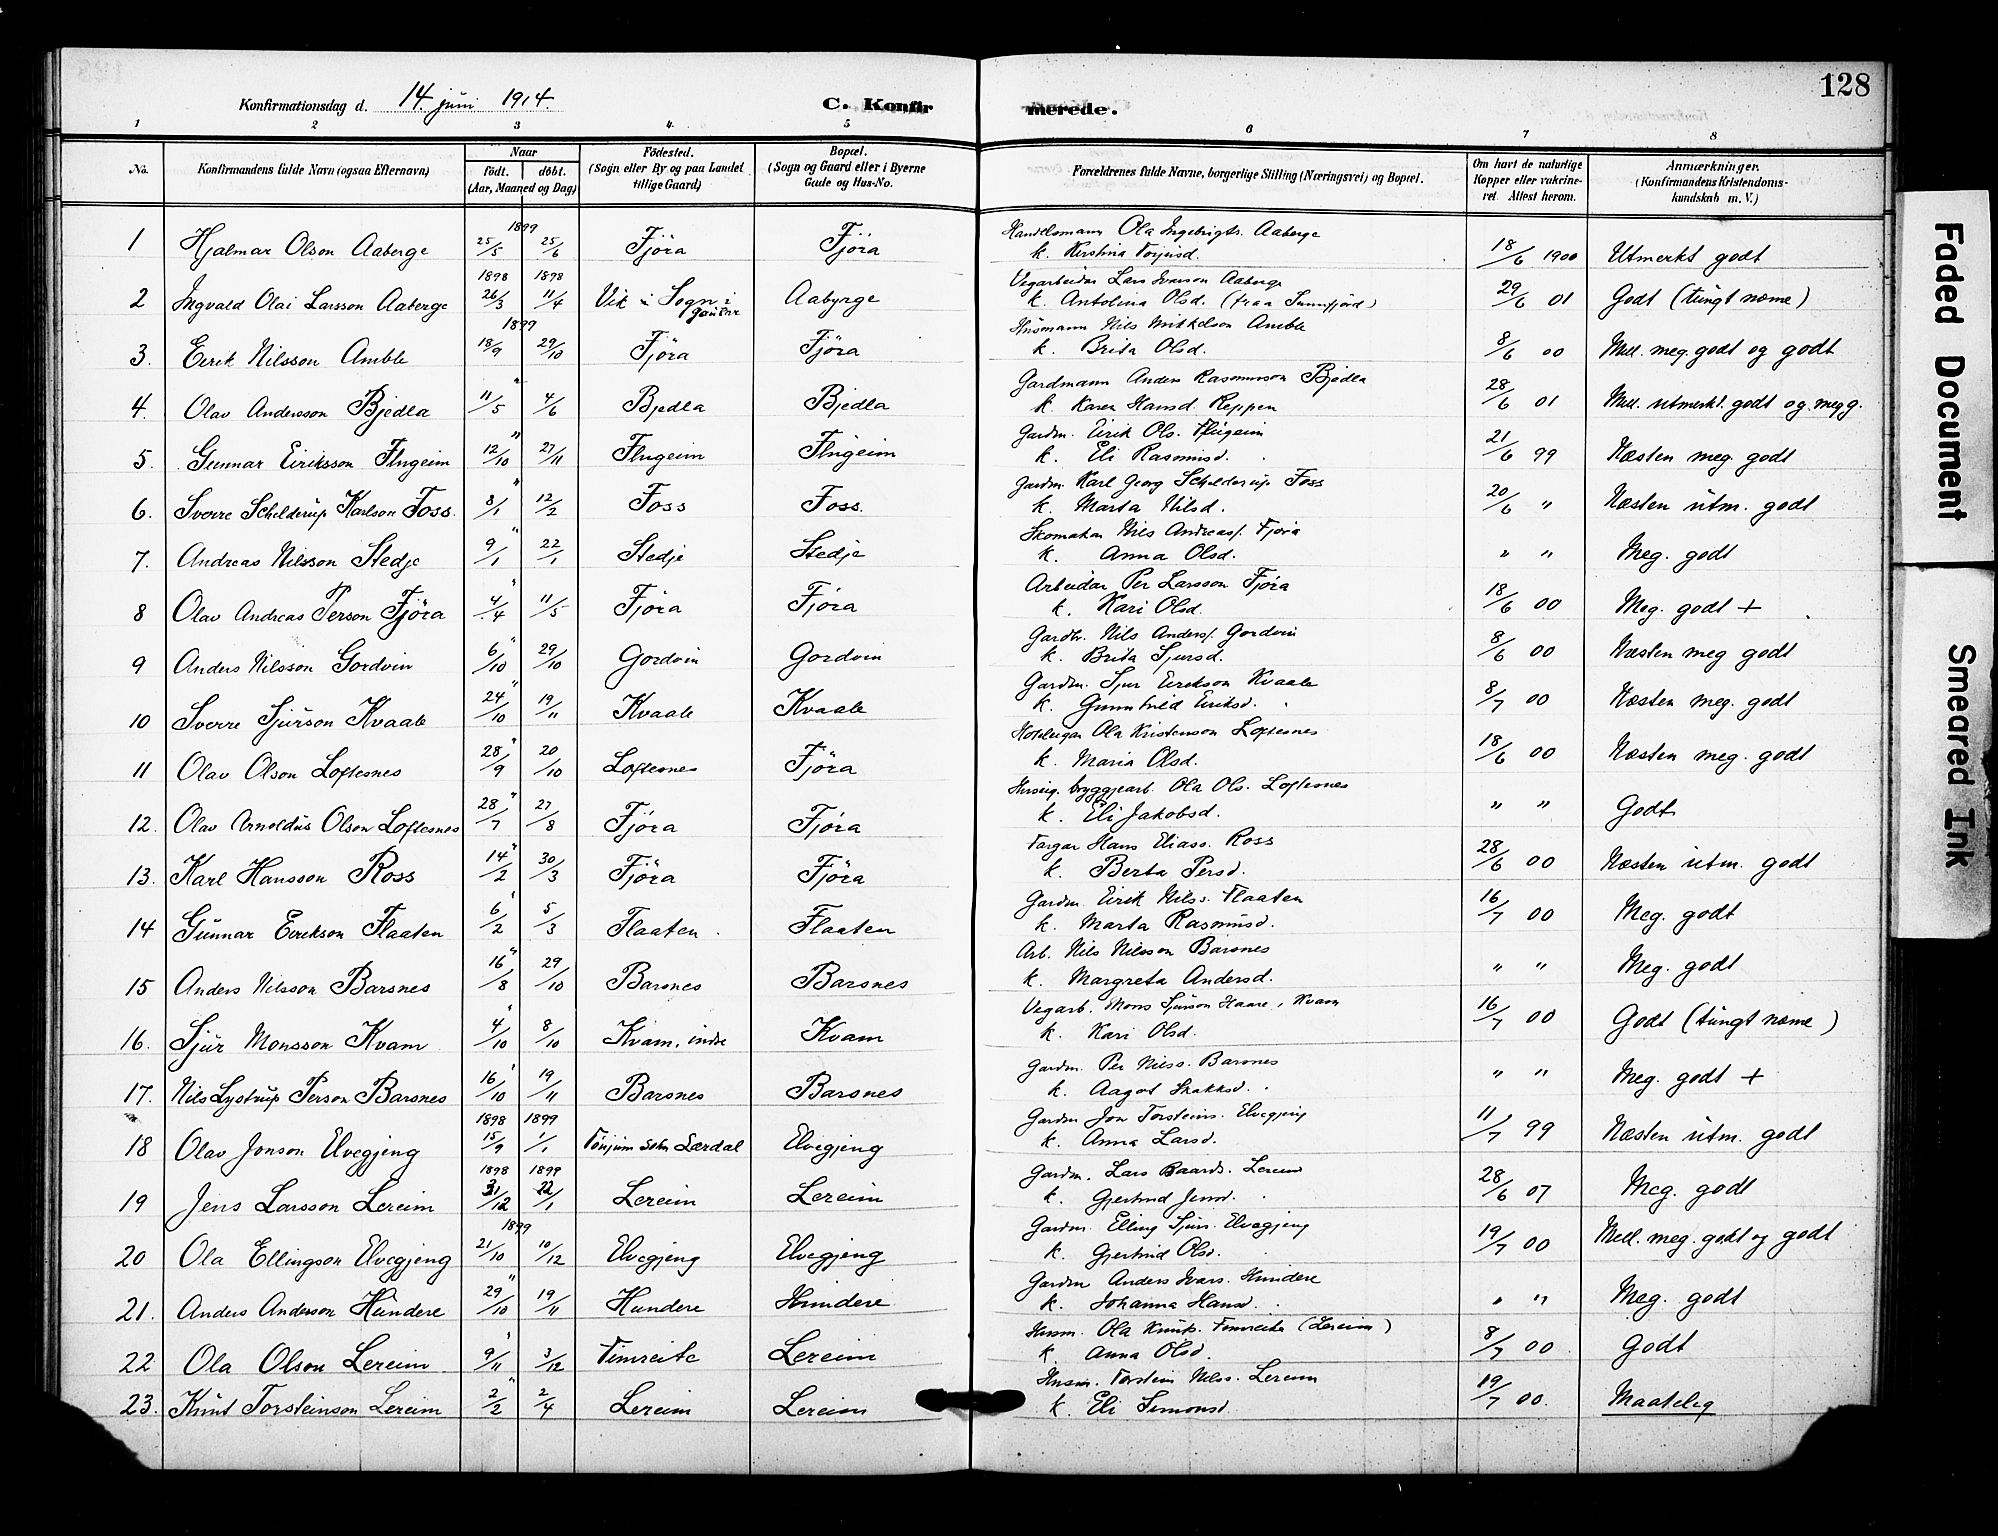 128
Konfirmationsdag d. 14. juni 1914. C. Konfirmerede.
1 2 3 4. 5 6 7 8
No. Konfirmandens fulde Navn (ogsaa Efternavn) Naar født. døbt. (Aar, Maaned og Dag) Fødested. (Sogn eller By og paa Landet tillige Gaard) Bopæl. (Sogn og Gaard eller i Byerne Gade og Hus-No. Forældrenes fulde Navne, borgerlige Stilling (Næringsvei) og Bopæl. Om havt de naturlige Kopper eller vakcineret. Attest herom. Anmærkninger. (Konfirmandens Kristendomskundskab m. V.)
1 Hjalmar Olson Aaberge 1899 25/5 25/6 Fjøra Fjøra Handelsmann Ola Ingebrigts. Aaberge
k. Kirstina Torjusd. 18/6 1900 Utmerkt godt
2 Ingvald Olai Larsson Aaberge 1898 26/3 1898 11/4 Vik i Sogn Aabyrge Vegarbeidar Lars Ivarson Aaberge
k. Antolina Olsd. (fraa Sunnfjord) 29/6 01 Godt (tungt næme)
3. Eirik Nilsson Amble 1899 18/9 29/10 Fjøra Fjøra Husmann Nils Mikkelson Amble
k. Brita Olsd. 8/6 00 Mell. meg. godt og godt
4. Olav Andersson Bjedla " 11/5 4/6 Bjedla Bjedla Gardmann Anders Rasmusson Bjedla
k. Karen Hansd. Reppen 28/6 01 Mell. utmerkt. godt og meg g.
5. Gunnar Eiriksson Flugeim " 12/10 27/11 Flugeim Flugeim Gardm. Eirik Ols. Flugeim
k. Eli Rasmusd. 21/6 99 Næsten meg. godt
6. Sverre Schelderup Karlson Foss. " 8/1 12/2 Foss Foss. Gardm. Karl Georg Schelderup Foss
k. Marta Nilsd. 20/6 " Næsten utm. godt
7. Andreas Nilsson Stedje " 9/1 22/1 Stedje Stedje Skomakar Nils Andreas. Fjøra
k. Anna Olsd. " " Meg. godt
8 Olav Andreas Person Fjøra " 4/4 11/5 Fjøra Fjøra Arbeidar Per Larsson Fjøra
k. Kari Olsd. 18/6 00 Meg. godt +
9 Anders Nilsson Gordvin " 6/10 29/10 Gordvin Gordvin Gardbr. Nils Anders. Gordvin
k. Brita Sjursd. 8/6 00 Næsten meg godt
10 Sverre Sjurson Kvaale " 24/10 19/11 Kvaale Kvaale Gardm. Sjur Eirikson Kvaale
k. Gunnhild Eriksd. 8/7 00 Næsten meg. godt
11 Olav Olson Loftesnes " 28/9 20/10 Loftesnes Fjøra Hoteleigar Ola Kristenson Loftesnes
k. Maria Olsd. 18/6 00 Næsten meg. godt
12. Olav Arnoldus Olson Loftesnes " 28/7 27/8 Fjøra Fjøra Huseig. bryggjearb. Ola Ols. Loftesnes
k. Eli Jakobsd. " " Godt
13. Karl Hansson Ross " 14/2 30/3 Fjøra Fjøra Fargar Hans Eliass. Ross
k. Berta Persd. 28/6 00 Næsten utm. godt
14 Gunnar Eirikson Flaaten " 6/2 5/3 Flaaten Flaaten Gardm. Eirik Nils. Flaaten
k. Marta Rasmusd. 16/7 00 Meg. godt
15 Anders Nilsson Barsnes " 16/8 29/10 Barsnes Barsnes Arb. Nils Nilsson Barsnes
k. Margreta Andersd. " " Meg. godt
16. Sjur Monsson Kvam " 4/10 8/10 Kvam, indre Kvam Vegarb. Mons Sjurson Haare, Kvam
k. Kari Olsd. 16/7 00 Godt (tungt næme)
17. Nils Lystrup Person Barsnes " 16/10 19/11 Barsnes Barsnes Gardm. Per Nilss. Barsnes
k. Aagot Skakksd. " " Meg. godt +
18 Olav Jonson Elvegjeng 1898 15/9 1899 1/1 Tønjum sokn Lærdal Elvegjeng Gardm. Jon Torsteins. Elvegjeng
k. Anna Larsd. 11/7 99 Næsten utm. godt
19 Jens Larsson Lereim 1898 31/12 1899 22/1 Lereim Lereim Gardm. Lars Baards. Lereim
k. Gjertrud Jensd. 28/6 07 Meg. godt
20 Ola Ellingson Elvegjeng 1899 21/10 10/12 Elvegjeng Elvegjeng Gardm. Elling Sjurs. Elvegjeng
k. Gjertrud Olsd. 19/7 00 Mell. meg. godt og godt
21. Anders Anderson Hundere " 29/10 19/11 Hundere Hundere Gardm Anders Ivars. Hundere
k. Johanna Hansd. " " Meg. godt
22 Ola Olson Lereim " 9/11 3/12 Timreite Lereim Husm. Ola Knuts. Timreite (Lereim)
k. Anna Olsd. 8/7 00 Godt
23. Knut Torsteinson Lereim " 2/2 2/4 Lereim Lereim Husm. Torstein Nilss. Lereim
k. Eli Simonsd. 19/7 00. Maateleg
Faded Document
Smeared Ink